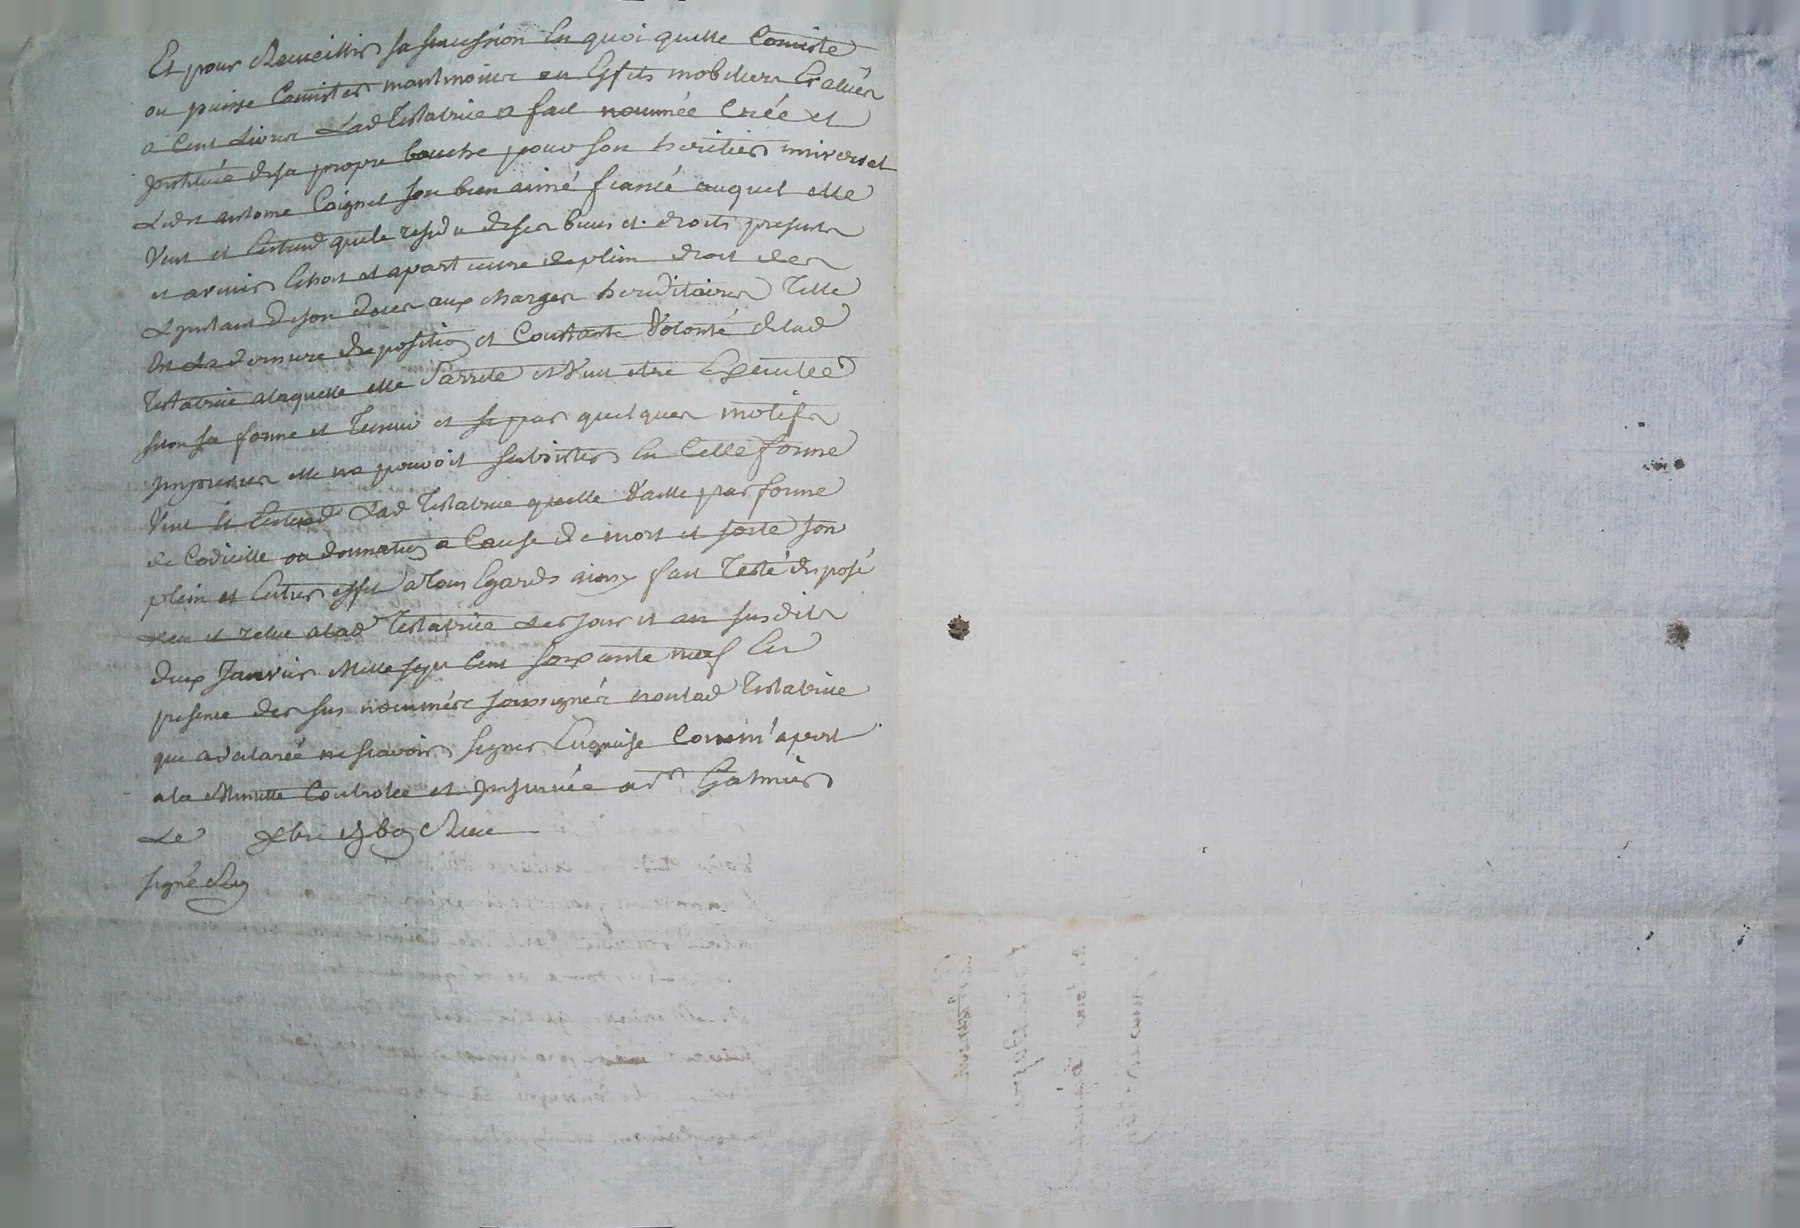 Et pour Recueillir sa sucession En quoi quelle Consiste
ou puisse Consister mant moins en Effets mobiliers Evalués
a Cent Livres Lad Testatrice a fait nommée Créé et
Jnstituée de sa propre bouche pour son heritier universel
Ledt antoine Coignet son bien aimé fiancé auquel elle
Veut et Entend que le residu de ses biens et droits presents
et avenir Echoit et apartienne de plein droit des
LJnstant de son deces aux charges hereditaires Telle
Est La derniere disposition et Constante Volonté de lad
Testatrice a laquelle elle Sarrete et Veut etre Executée
selon sa forme et Teneur et si par quelques motifs
Jmprevus elle ne pouvoit subsister En Celle forme
Veut et Entend Lad Testatrice quelle Vaille par forme
de Codicille ou donnation a Cause de mort et sorte son
plein et Entier effet a Tous Egards ainsy fait Testé disposé
Leu et relue a lad Testatrice Les jour et an susdits
deux Janvier Mille sept Cent soixante neuf En
presence des sus nommées soussignés non lad Testatrice
que a declaréé ne scavoir signer Enquise Comm'apert
a la Minutte Controlée et Jnsinuée a St Galmier
Le Xbre Reçu
signé